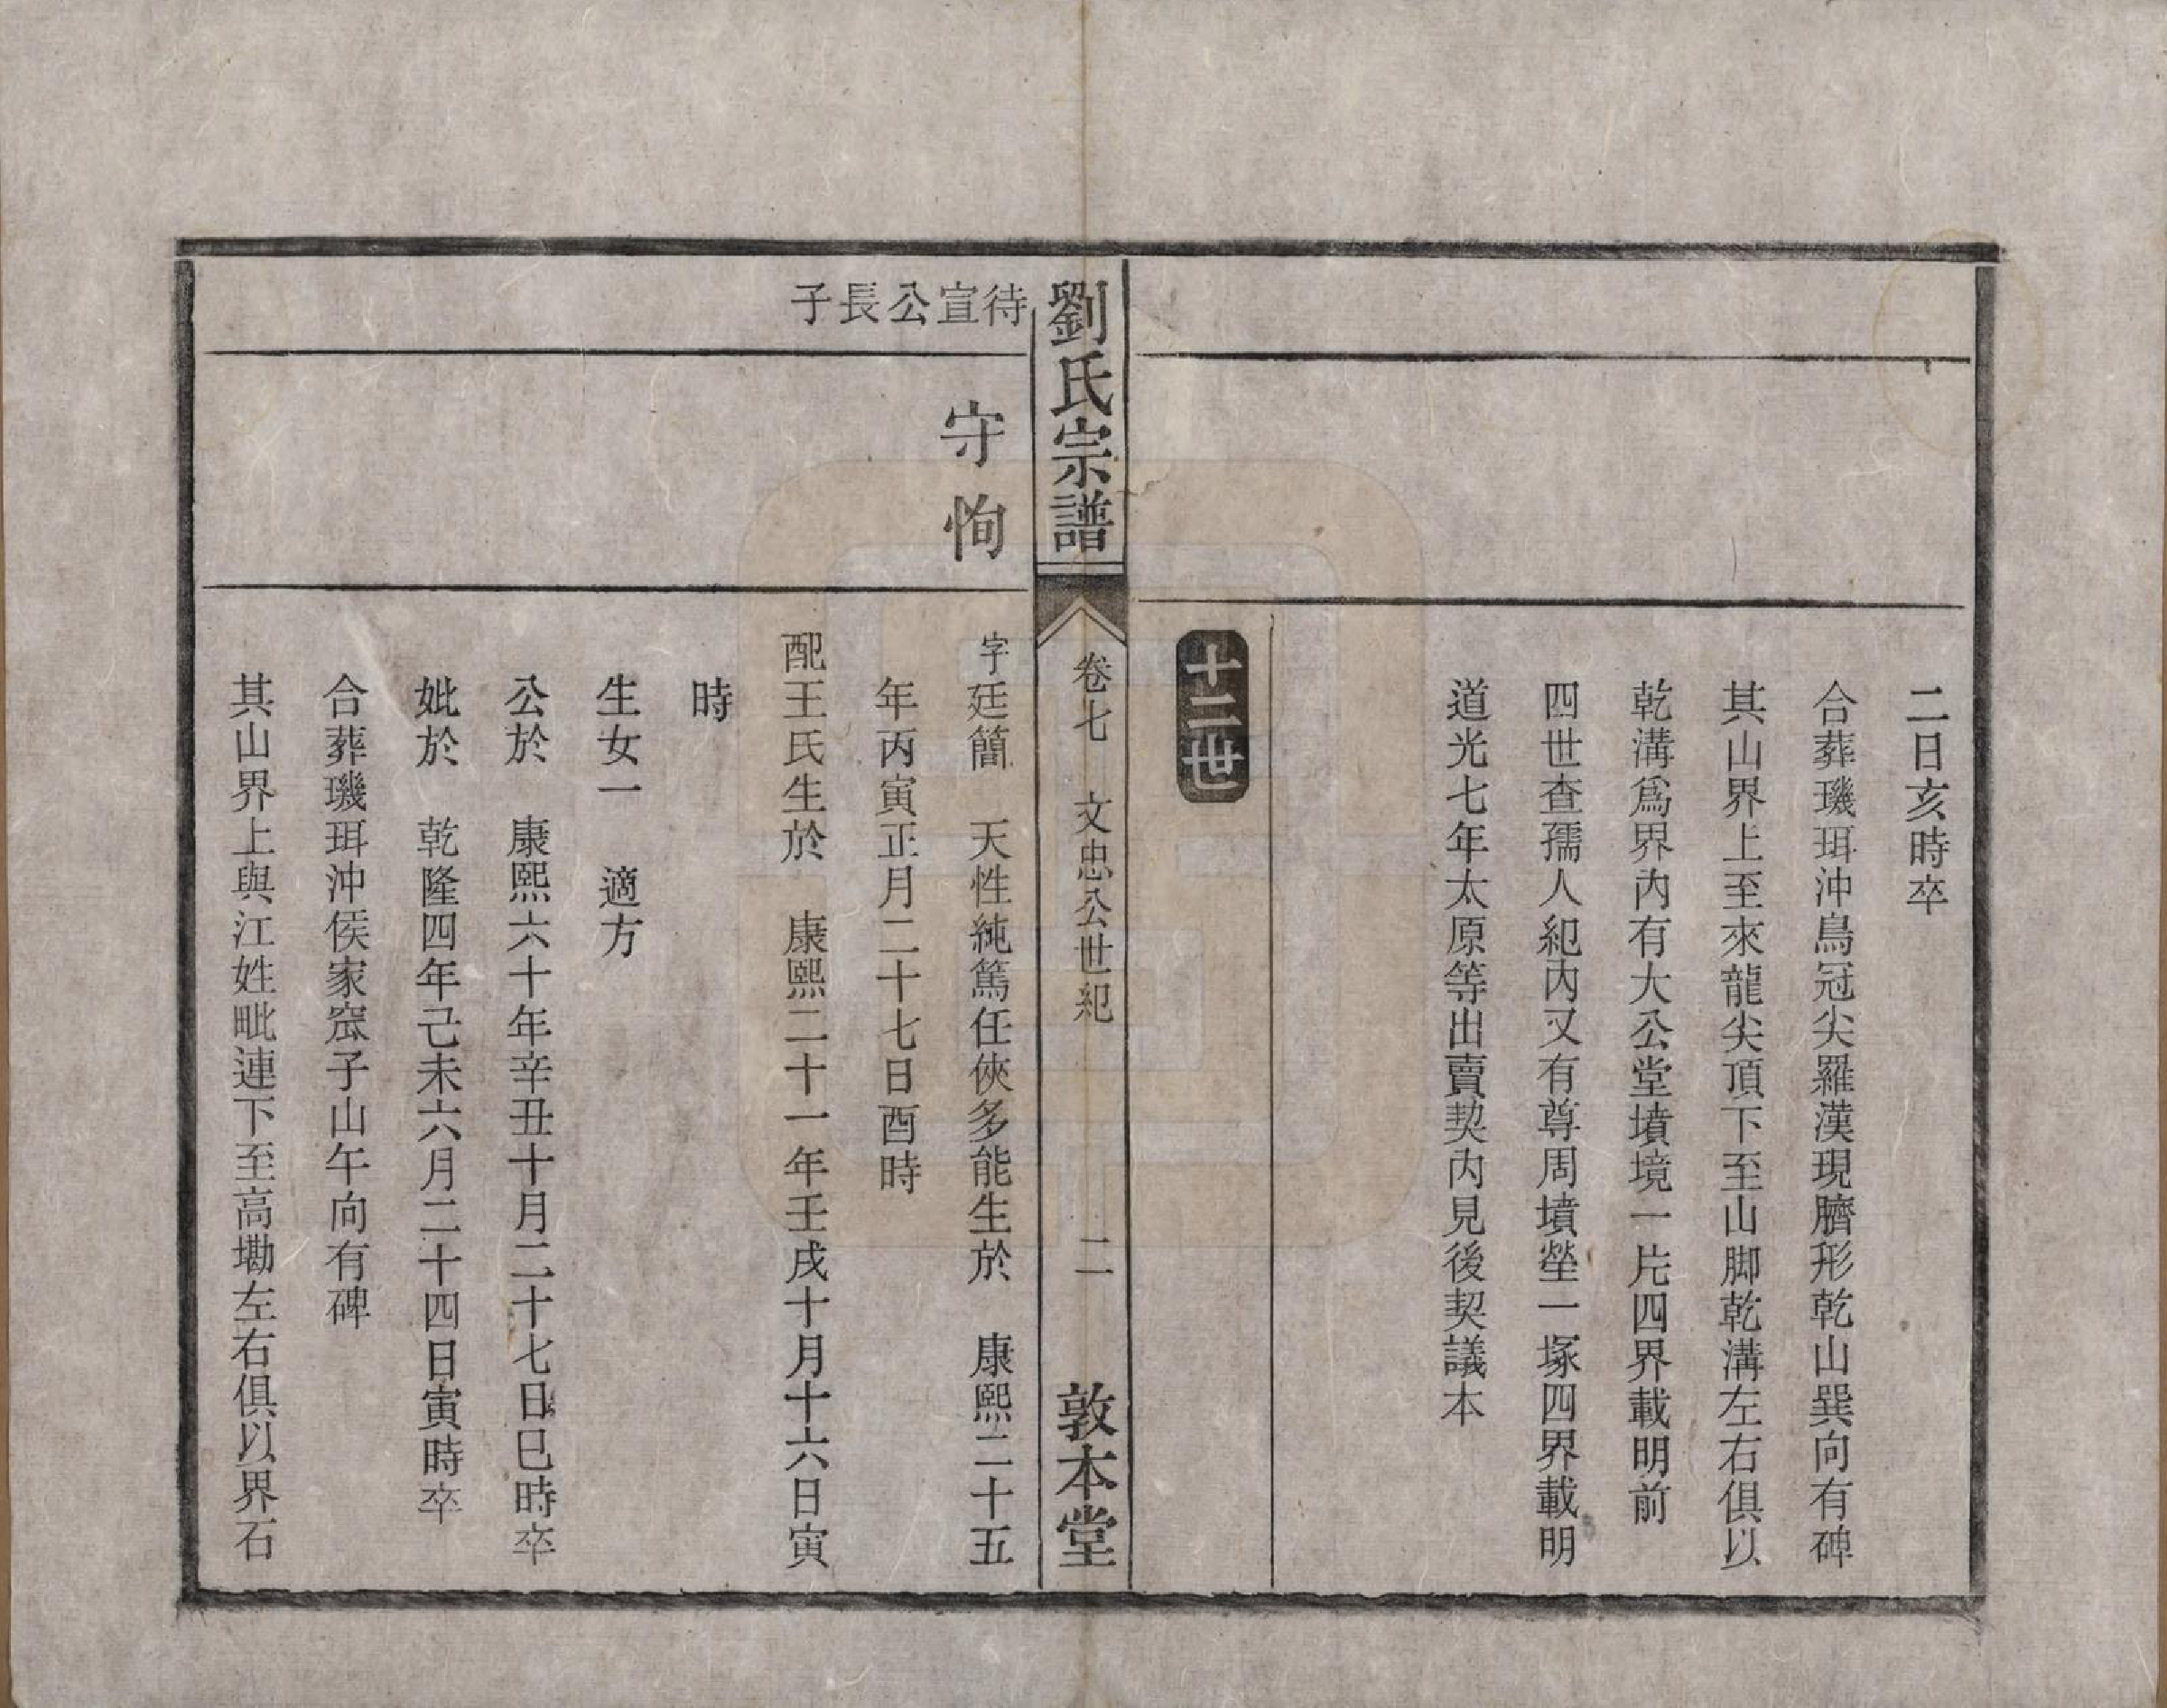 二日亥時卒
合葬璣珥沖鳥冠尖羅漢現臍形乾山巽向有碑
其山界上至來龍尖頂下至山脚乾溝左右俱以
乾溝爲界內有大公堂墳境一片四界載明前
四世查孺人紀內又有尊周墳塋一塚四界載明
道光七年太原等出賣契內見後契議本
十二世
劉氏宗譜
卷七 文忠公世紀
二
敦本堂
待宣公長子
守恂
字廷簡 天性純篤任俠多能生於 康熙二十五
年丙寅正月二十七日酉時
配王氏生於 康熙二十一年壬戌十月十六日寅
時
生女一 適方
公於 康熙六十年辛丑十月二十七日巳時卒
妣於 乾隆四年己未六月二十四日寅時卒
合葬璣珥沖侯家窊子山午向有碑
其山界上與江姓毗連下至高墈左右俱以界石